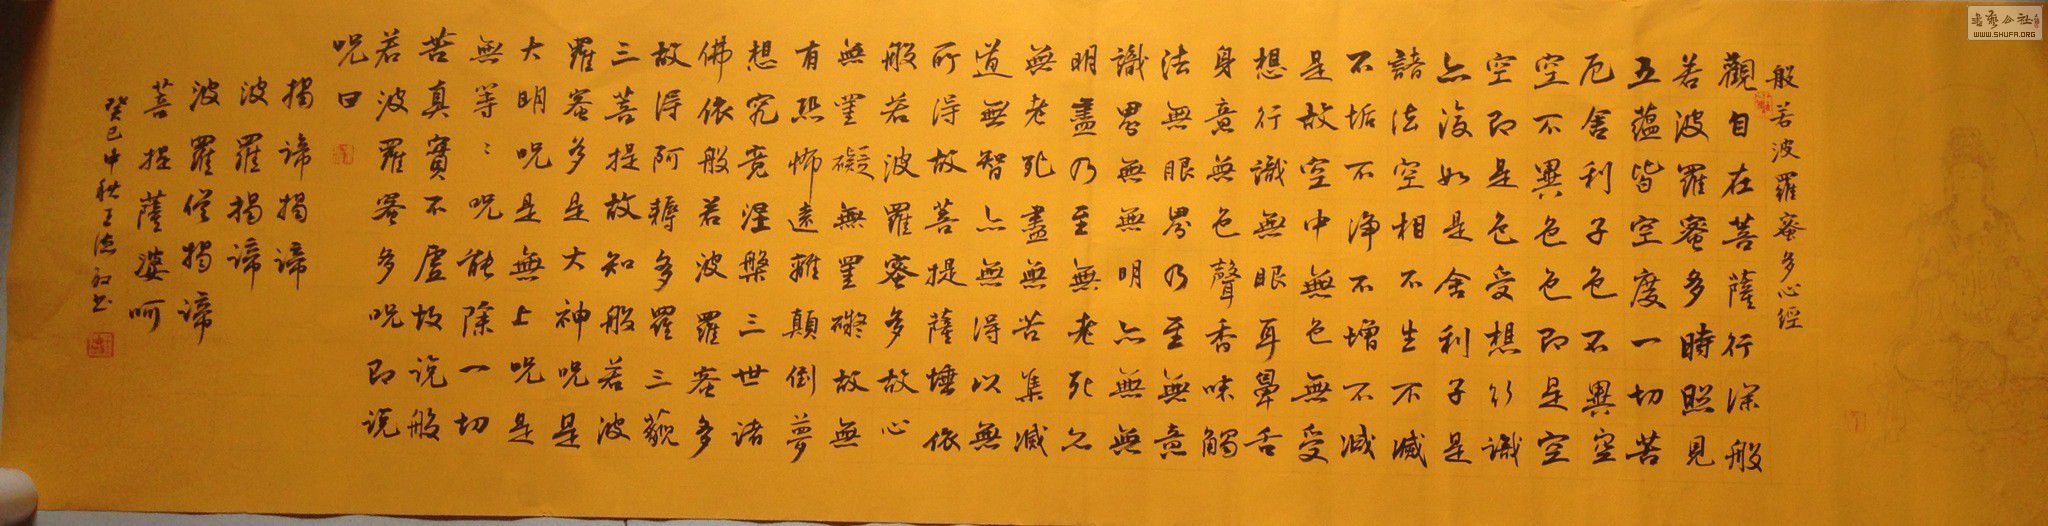 般若波羅蜜多心經
觀自在菩薩行深般
若波羅蜜多時照見
五蘊皆空度一切苦
厄舍利子色不異空
空不異色色即是空
空即是色受想行識
亦復如是舍利子是
諸法空相不生不滅
不垢不淨不增不減
是故空中無色無受
想行識無眼耳鼻舌
身意無色聲香味觸
法無眼界乃至無意
識界無無明亦無無
明盡乃至無老死亦
無老死盡無苦集滅
道無智亦無得以無
所得故菩提薩埵依
般若波羅蜜多故心
無罣礙無罣礙故無
有恐怖遠離顛倒夢
想究竟涅槃三世諸
佛依般若波羅蜜多
故得阿耨多羅三藐
三菩提故知般若波
羅蜜多是大神呪是
大明呪是無上呪是
無等〻呪能除一切
苦真實不虛故説般
若波羅蜜多呪即説
呪曰
揭諦揭諦
波羅揭諦
波羅僧揭諦
菩提薩婆呵
癸巳中秋王德書
書藝公社
WWW.SHUFA.ORG